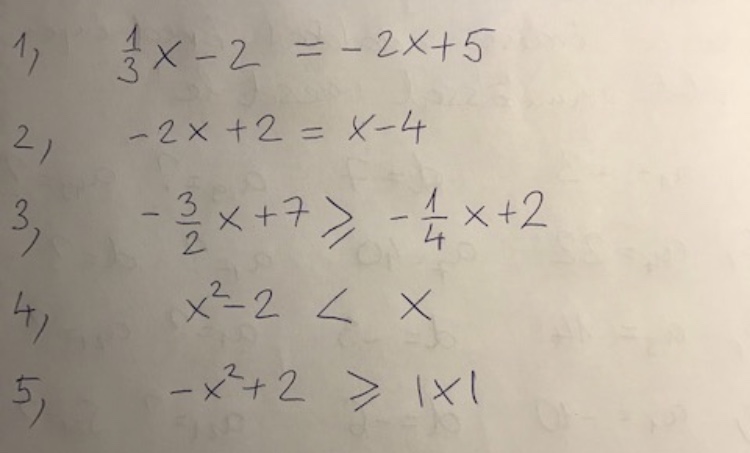 1, 1/3 x - 2 = -2x+5
2, -2x+2 = x-4
3, -3/2 x+7 ⩾ -1/4 x+2
4, x²-2 < x
5, -x²+2 ⩾ |x|